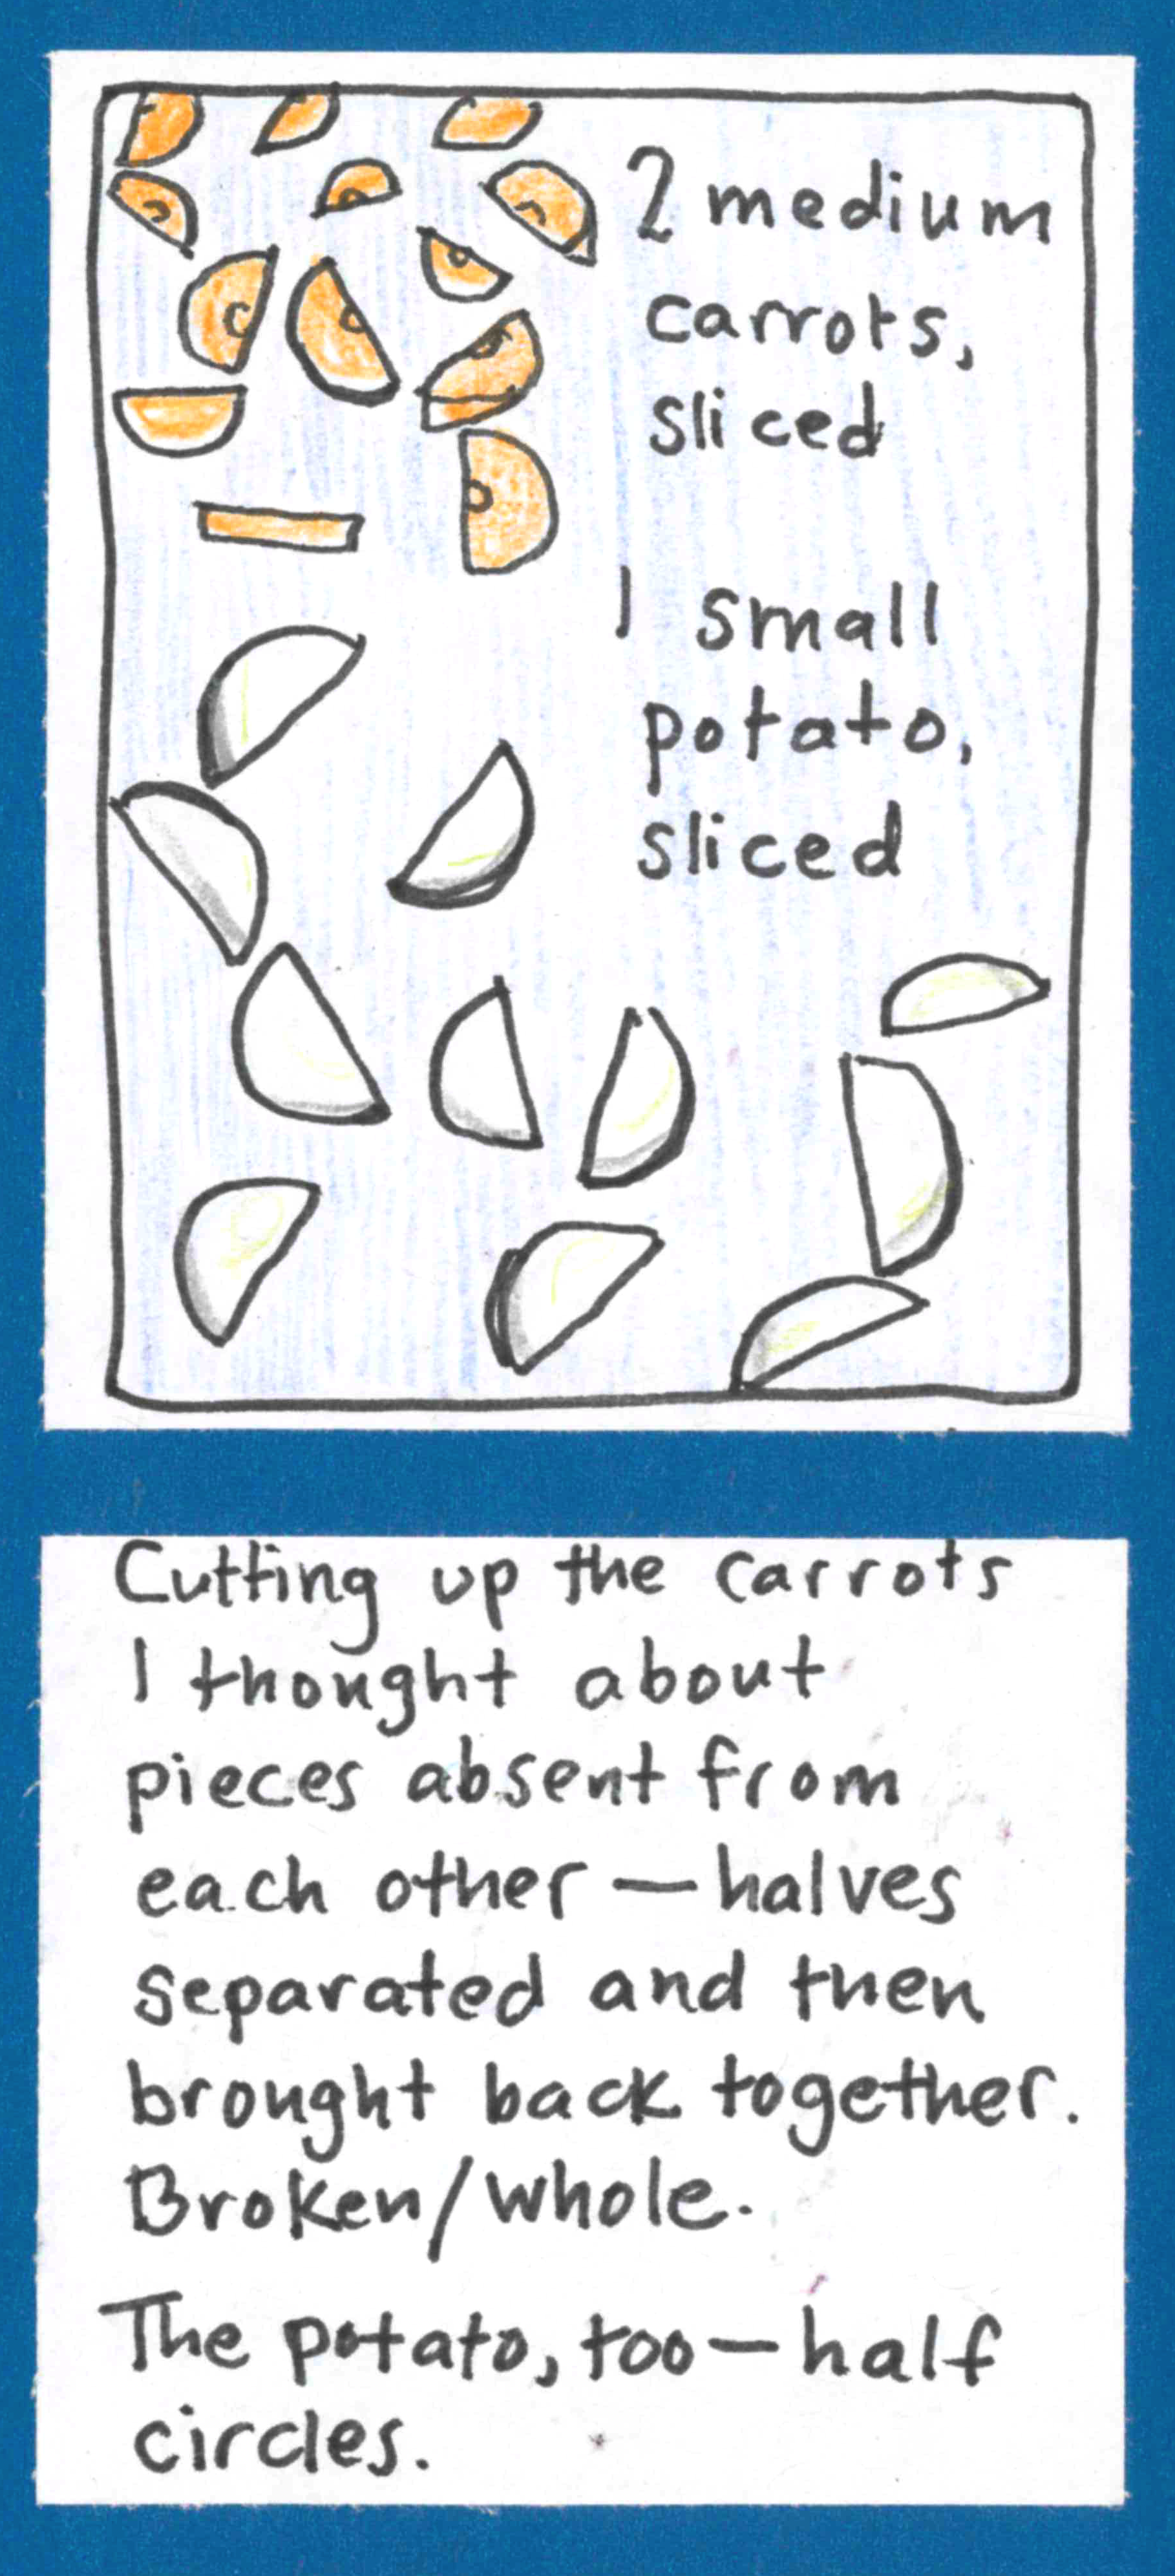 2 medium
carrots,
sliced
1 small
potato,
sliced
Cutting up the carrots
I thought about
pieces absent from
each other — halves
separated and then
brought back together.
Broken/whole.
The potato, too — half
circles.